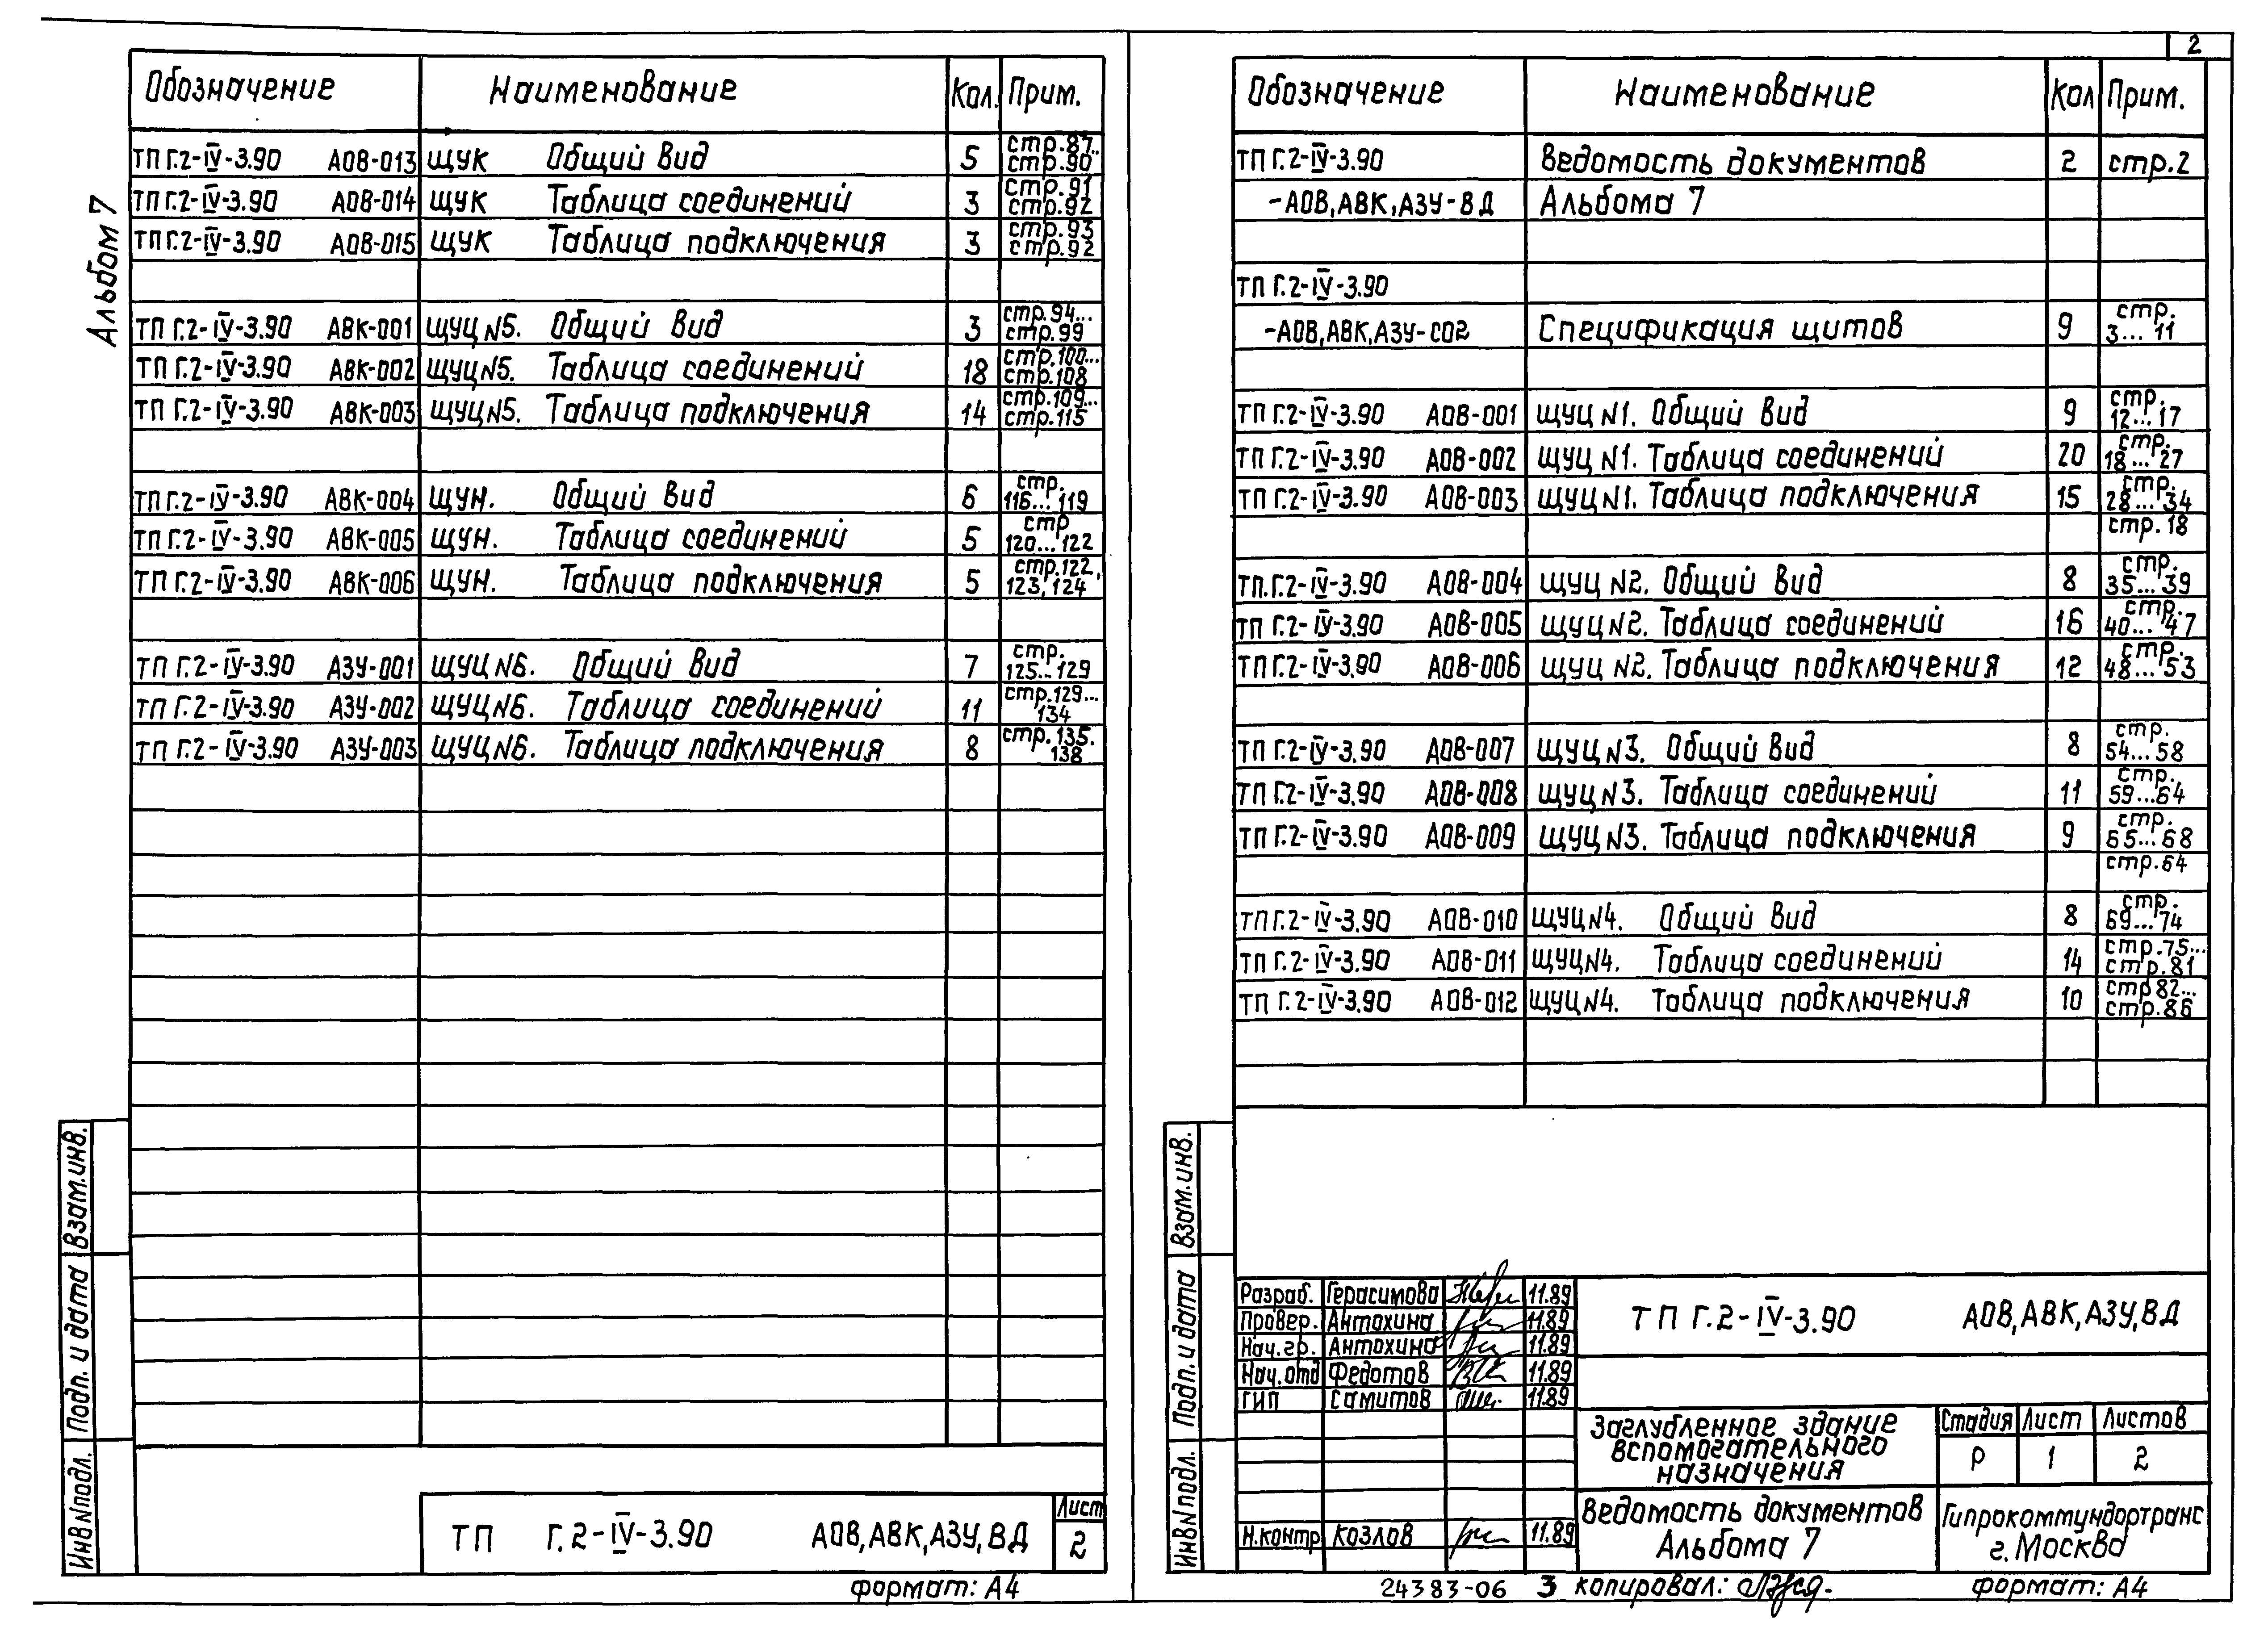 Альбом 7
Обозначение Наименование Кол. Прим.
ТП Г.2-IV-3.90 АОВ-013 ЩУК Общий вид 5 стр.87.. стр.90
ТП Г.2-IV-3.90 АОВ-014 ЩУК Таблица соединений 3 стр.91 стр.92
ТП Г.2-IV-3.90 АОВ-015 ЩУК Таблица подключения 3 стр.93 стр.92
ТП Г.2-IV-3.90 АВК-001 ЩУЦ N5. Общий вид 3 стр.94... стр.99
ТП Г.2-IV-3.90 АВК-002 ЩУЦ N5. Таблица соединений 18 стр.100... стр.108
ТП Г.2-IV-3.90 АВК-003 ЩУЦ N5. Таблица подключения 14 стр.109... стр.115
ТП Г.2-IV-3.90 АВК-004 ЩУН. Общий вид 6 стр. 116...119
ТП Г.2-IV-3.90 АВК-005 ЩУН. Таблица соединений 5 стр 120...122
ТП Г.2-IV-3.90 АВК-006 ЩУН. Таблица подключения 5 стр.122, 123, 124
ТП Г.2-IV-3.90 АЗУ-001 ЩУЦ N6. Общий вид 7 стр. 125...129
ТП Г.2-IV-3.90 АЗУ-002 ЩУЦ N6. Таблица соединений 11 стр.129... 134
ТП Г.2-IV-3.90 АЗУ-003 ЩУЦ N6. Таблица подключения 8 стр.135. 138
Взам.инв.
Подп. и дата
Инв N подл.
ТП Г.2-IV-3.90 АОВ,АВК,АЗУ,ВД Лист 2
формат: А4
2
Обозначение Наименование Кол Прим.
ТП Г.2-IV-3.90 Ведомость документов 2 стр.2
-АОВ,АВК,АЗУ-ВД Альбома 7
ТП Г.2-IV-3.90
-АОВ,АВК,АЗУ-СО2 Спецификация щитов 9 стр. 3...11
ТП Г.2-IV-3.90 АОВ-001 ЩУЦ N1. Общий вид 9 стр. 12...17
ТП Г.2-IV-3.90 АОВ-002 ЩУЦ N1. Таблица соединений 20 стр. 18...27
ТП Г.2-IV-3.90 АОВ-003 ЩУЦ N1. Таблица подключения 15 стр. 28...34
стр. 18
ТП.Г.2-IV-3.90 АОВ-004 ЩУЦ N2. Общий вид 8 стр. 35...39
ТП Г.2-IV-3.90 АОВ-005 ЩУЦ N2. Таблица соединений 16 стр. 40...47
ТП Г.2-IV-3.90 АОВ-006 ЩУЦ N2. Таблица подключения 12 стр. 48...53
ТП Г.2-IV-3.90 АОВ-007 ЩУЦ N3. Общий вид 8 стр. 54...58
ТП Г.2-IV-3.90 АОВ-008 ЩУЦ N3. Таблица соединений 11 стр. 59...64
ТП Г.2-IV-3.90 АОВ-009 ЩУЦ N3. Таблица подключения 9 стр. 65...68
стр.64
ТП Г.2-IV-3.90 АОВ-010 ЩУЦ N4. Общий вид 8 стр. 69...74
ТП Г.2-IV-3.90 АОВ-011 ЩУЦ N4. Таблица соединений 14 стр.75... стр.81
ТП Г.2-IV-3.90 АОВ-012 ЩУЦ N4. Таблица подключения 10 стр 82... стр.86
Взам.инв.
Подп. и дата
Инв N подл.
Разраб. Герасимова 11.89
Провер. Антохина 11.89
Нач.гр. Антохина 11.89
Нач.отд Федотов 11.89
ГИП Самитов 11.89
Н.контр Козлов 11.89
ТП Г.2-IV-3.90 АОВ,АВК,АЗУ,ВД
Заглубленное здание
вспомогательного
назначения
Стадия Лист Листов
Р 1 2
Ведомость документов
Альбома 7
Гипрокоммундортранс
г.Москва
24383-06 3 копировал: формат: А4